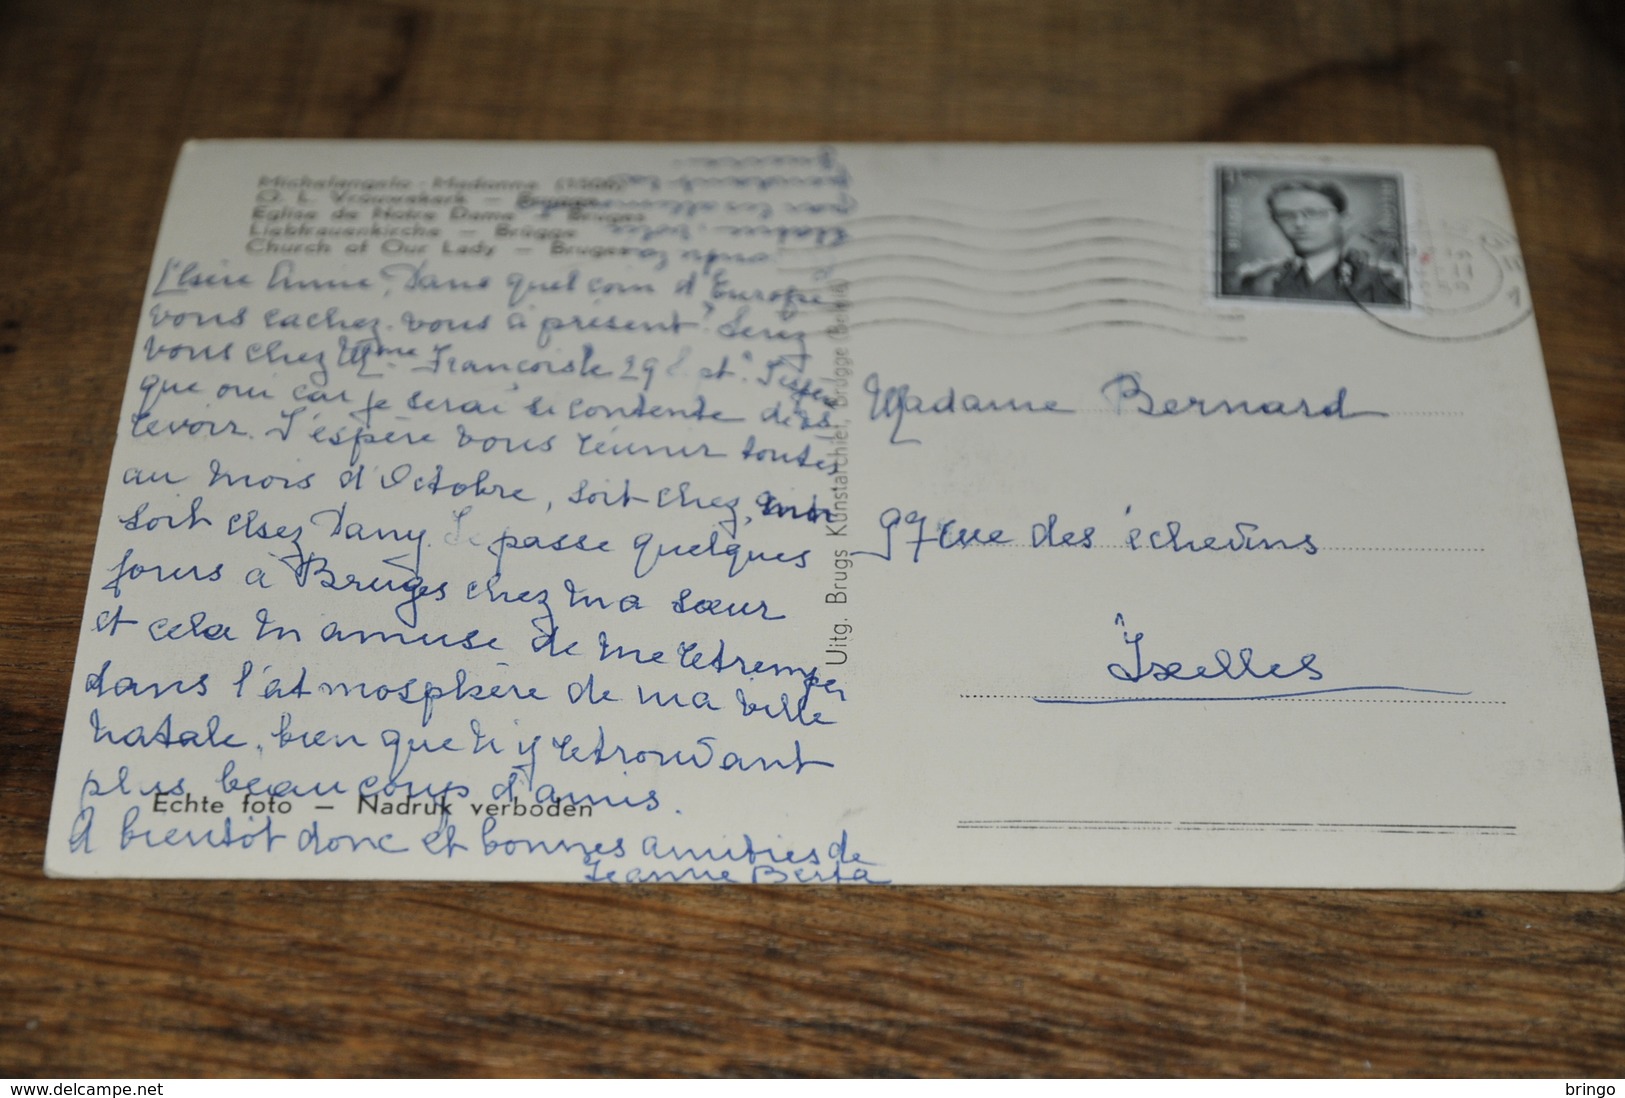 Michelangelo - Madonna
O. L. Vrouwekerk - Brugge
Eglise de Notre Dame - Bruges
Liebfrauenkirche - Brügge
Church of Our Lady - Bruges
Chère Annie, Dans quel coin d'Europe
vous cachez-vous à présent? Serez
vous chez Mme 29
que oui car je serai si contente de vs
revoir. J'espère vous réunir toutes
au mois d'Octobre, soit chez moi
soit chez Dany. Je passe quelques
jours à Bruges chez ma sœur
et cela m'amuse de me retremper
dans l'atmosphère de ma ville
natale, bien que n'y retrouvant
plus beaucoup d'amis.
A bientôt donc et bonnes amitiés de
Jeanne Berta
Echte foto - Nadruk verboden
Uitg. Brugs Kunstarchief, Brugge
Madame Bernard
97 rue des échevins
Ixelles
bonnes-images-du-temps-passe.delcampe.net
bringo